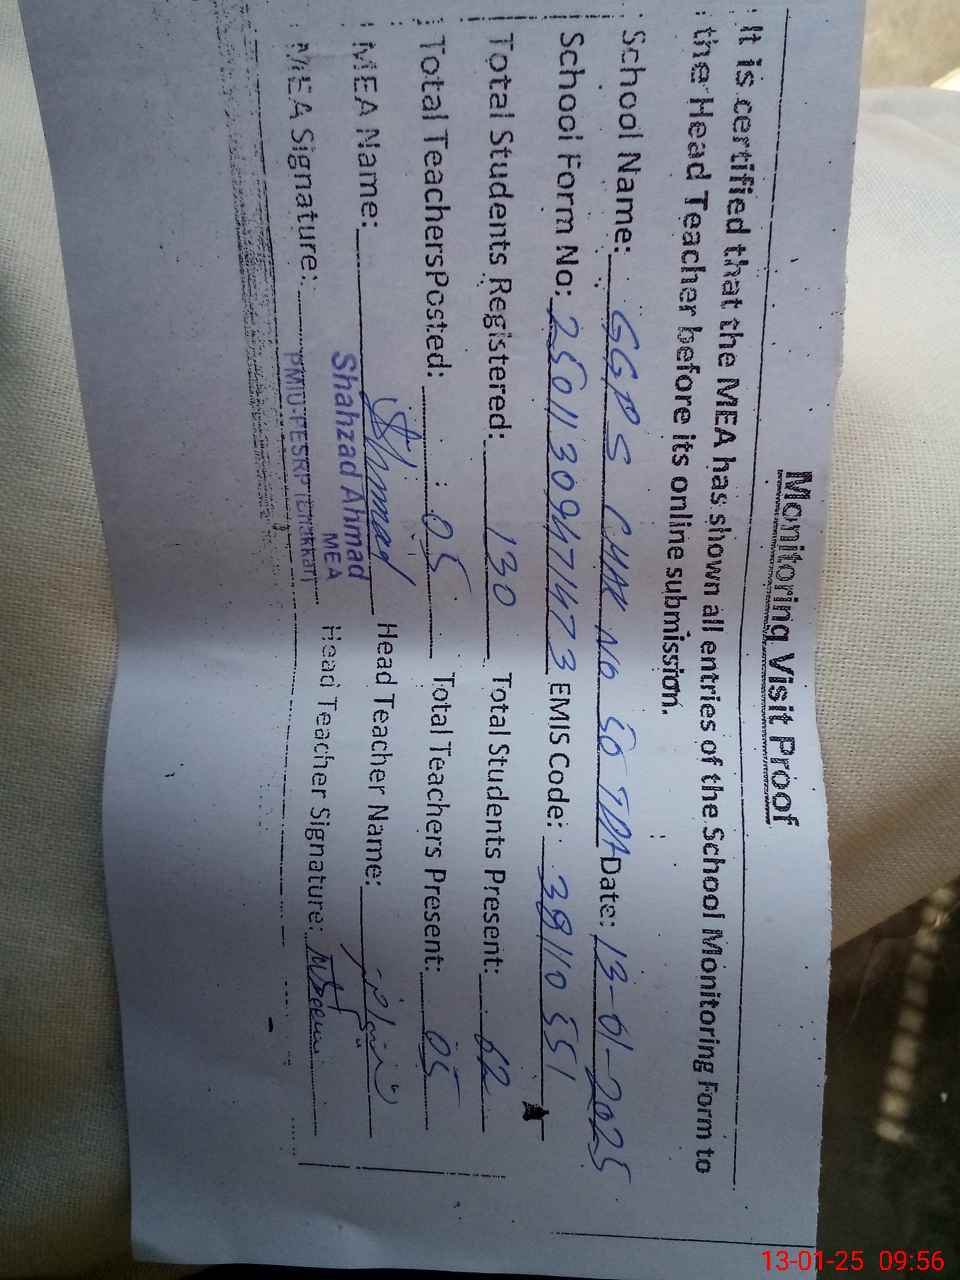 Monitoring Visit Proof
It is certified that the MEA has shown all entries of the School Monitoring Form to
the Head Teacher before its online submission.
School Name: GGPS CHAK NO 50 TDA Date: 13-01-2025
School Form No: 25011309471473 EMIS Code: 38110551
Total Students Registered: 130 Total Students Present: 62
Total TeachersPosted: 05 Total Teachers Present: 05
MEA Name: Ahmad Head Teacher Name:
Shahzad Ahmad
MEA
MEA Signature: PMIU-PESRP (Bhakkar) Head Teacher Signature:
13-01-25 09:56